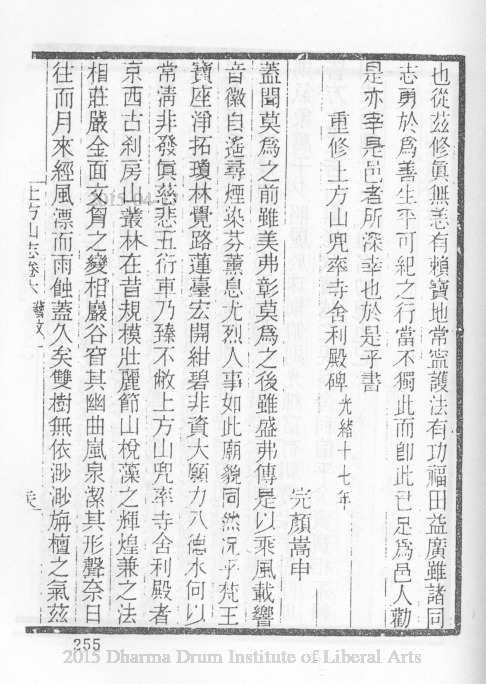 也從茲修眞無恙有賴寶地常寧護法有功福田益廣雖諸同
志勇於爲善生平可紀之行當不獨此而即此已足爲邑人勸
是亦宰是邑者所深幸也於是乎書
重修上方山兜率寺舍利殿碑 光緒十七年
完顏嵩申
蓋聞莫爲之前雖美弗彰莫爲之後雖盛弗傳是以乘風載響
音徽自遙尋煙染芬薰息尤烈人事如此廟貌同然況乎梵王
寶座淨拓瓊林覺路蓮臺玄開紺碧非資大願力八德水何以
常淸非發眞慈悲五衍車乃臻不敝上方山兜率寺舍利殿者
京西古刹房山叢林在昔規模壯麗節山梲藻之輝煌兼之法
相莊嚴金面文胷之變相巖谷窅其幽曲嵐泉潔其形聲奈日
往而月來經風漂而雨蝕蓋久矣雙樹無依渺渺旃檀之氣茲
上方山志卷六 藝文
255
2015 Dharma Drum Institute of Liberal Arts